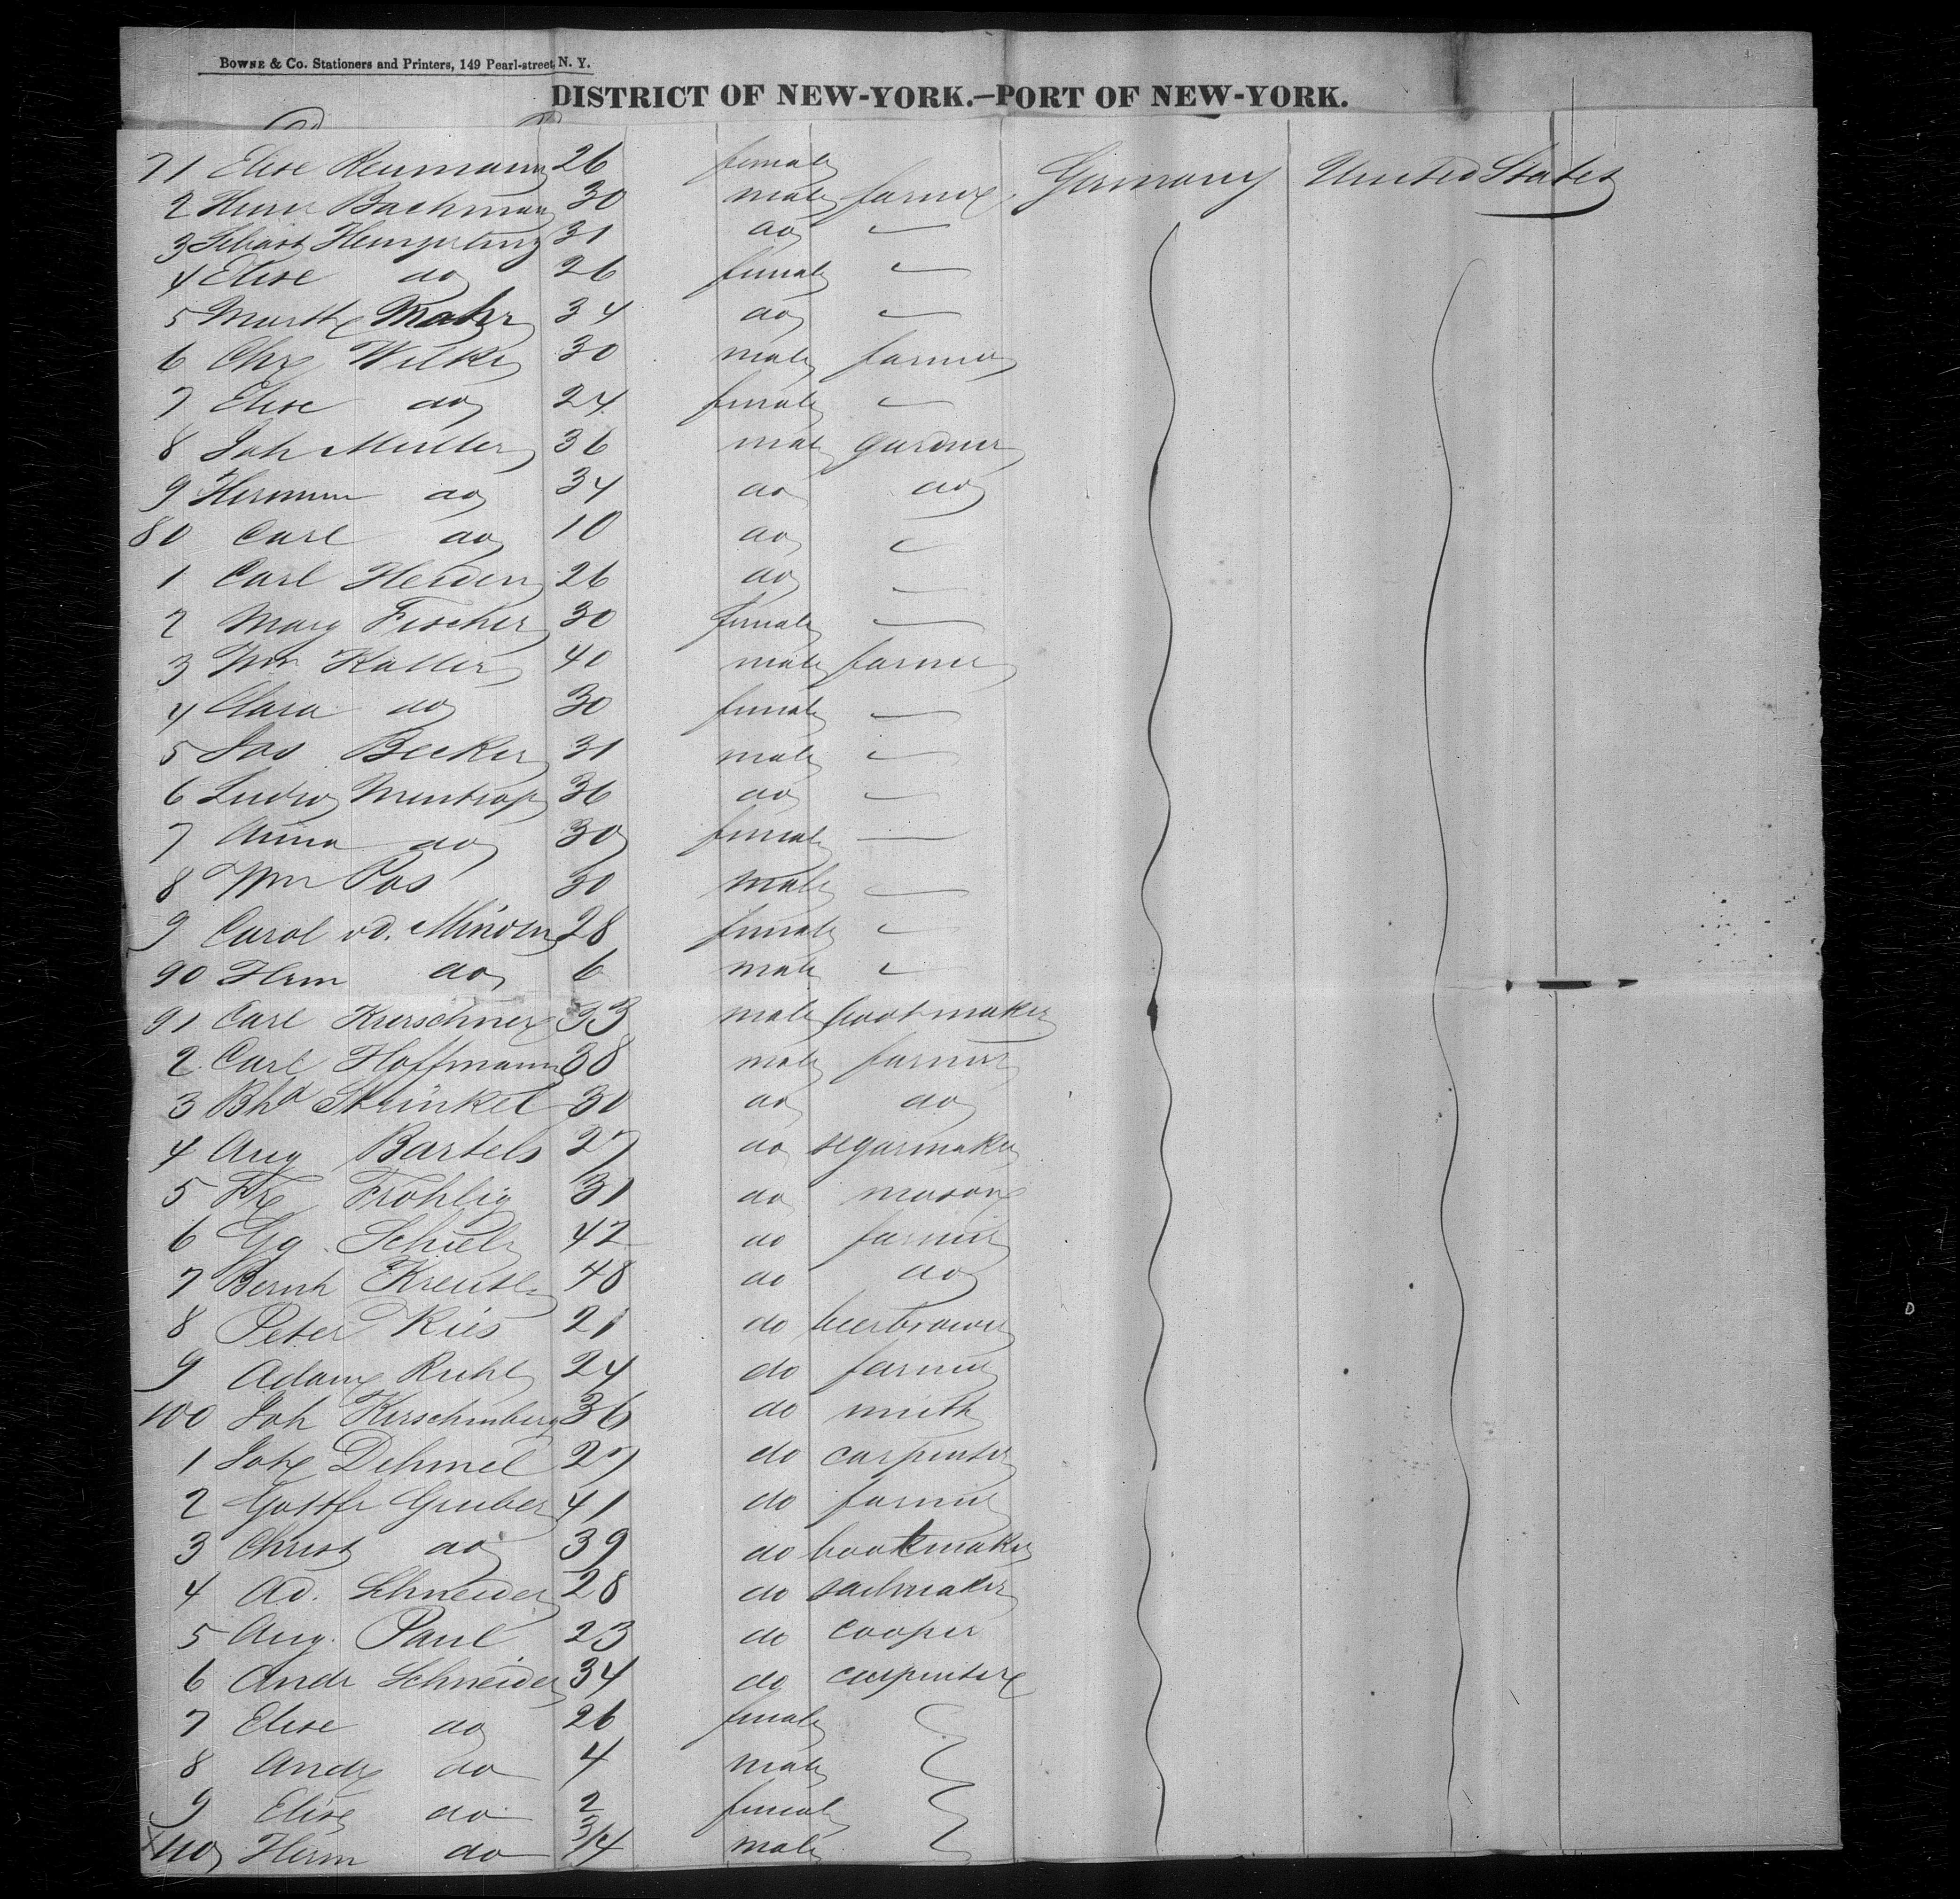 Bowne & Co. Stationers and Printers, 149 Pearl-street, N. Y.
DISTRICT OF NEW-YORK.—PORT OF NEW-YORK.
71 Elise Reumann 26 female Germany United States
2 Bachmann 30 male farmer
3 Sebast 31 do
4 Elise do 26 female
5 Marth Mahr 34 do
6 Chr Wilke 30 male farmer
7 Elise do 24 female
8 Joh Muller 36 male gardner
9 Hermnn do 34 do do
80 Carl do 10 do
1 Carl Heiden 26 do
2 Marg Fischer 30 female
3 Wm Kaller 40 male farmer
4 Clara do 30 female
5 Jos Becker 31 male
6 Ludwg Mentrop 36 do
7 Anna do 30 female
8 Wm Pos 30 male
9 Carol vd. Minden 28 female
90 Hrm do 6 male
91 Carl 33 male bootmaker
2 Carl Hoffmann 38 male farmer
3 Bhd 30 do do
4 Aug Bartels 27 do segarmaker
5 Fr Frohlig 31 do mason
6 Gg. 42 do farmer
7 Bernh 48 do do
8 Peter Ries 21 do beerbrower
9 Adam Ruhl 24 do farmer
100 Joh 36 do smith
1 Joh Dehmel 27 do carpenter
2 Gottfr Gruber 41 do farmer
3 Christ do 39 do bootmaker
4 Ad. Schneider 28 do sailmaker
5 Aug. Paul 23 do cooper
6 Andr Schneider 34 do carpenter
7 Elise do 26 female
8 Andr do 4 male
9 Elise do 2 female
110 Herm do 3/4 male